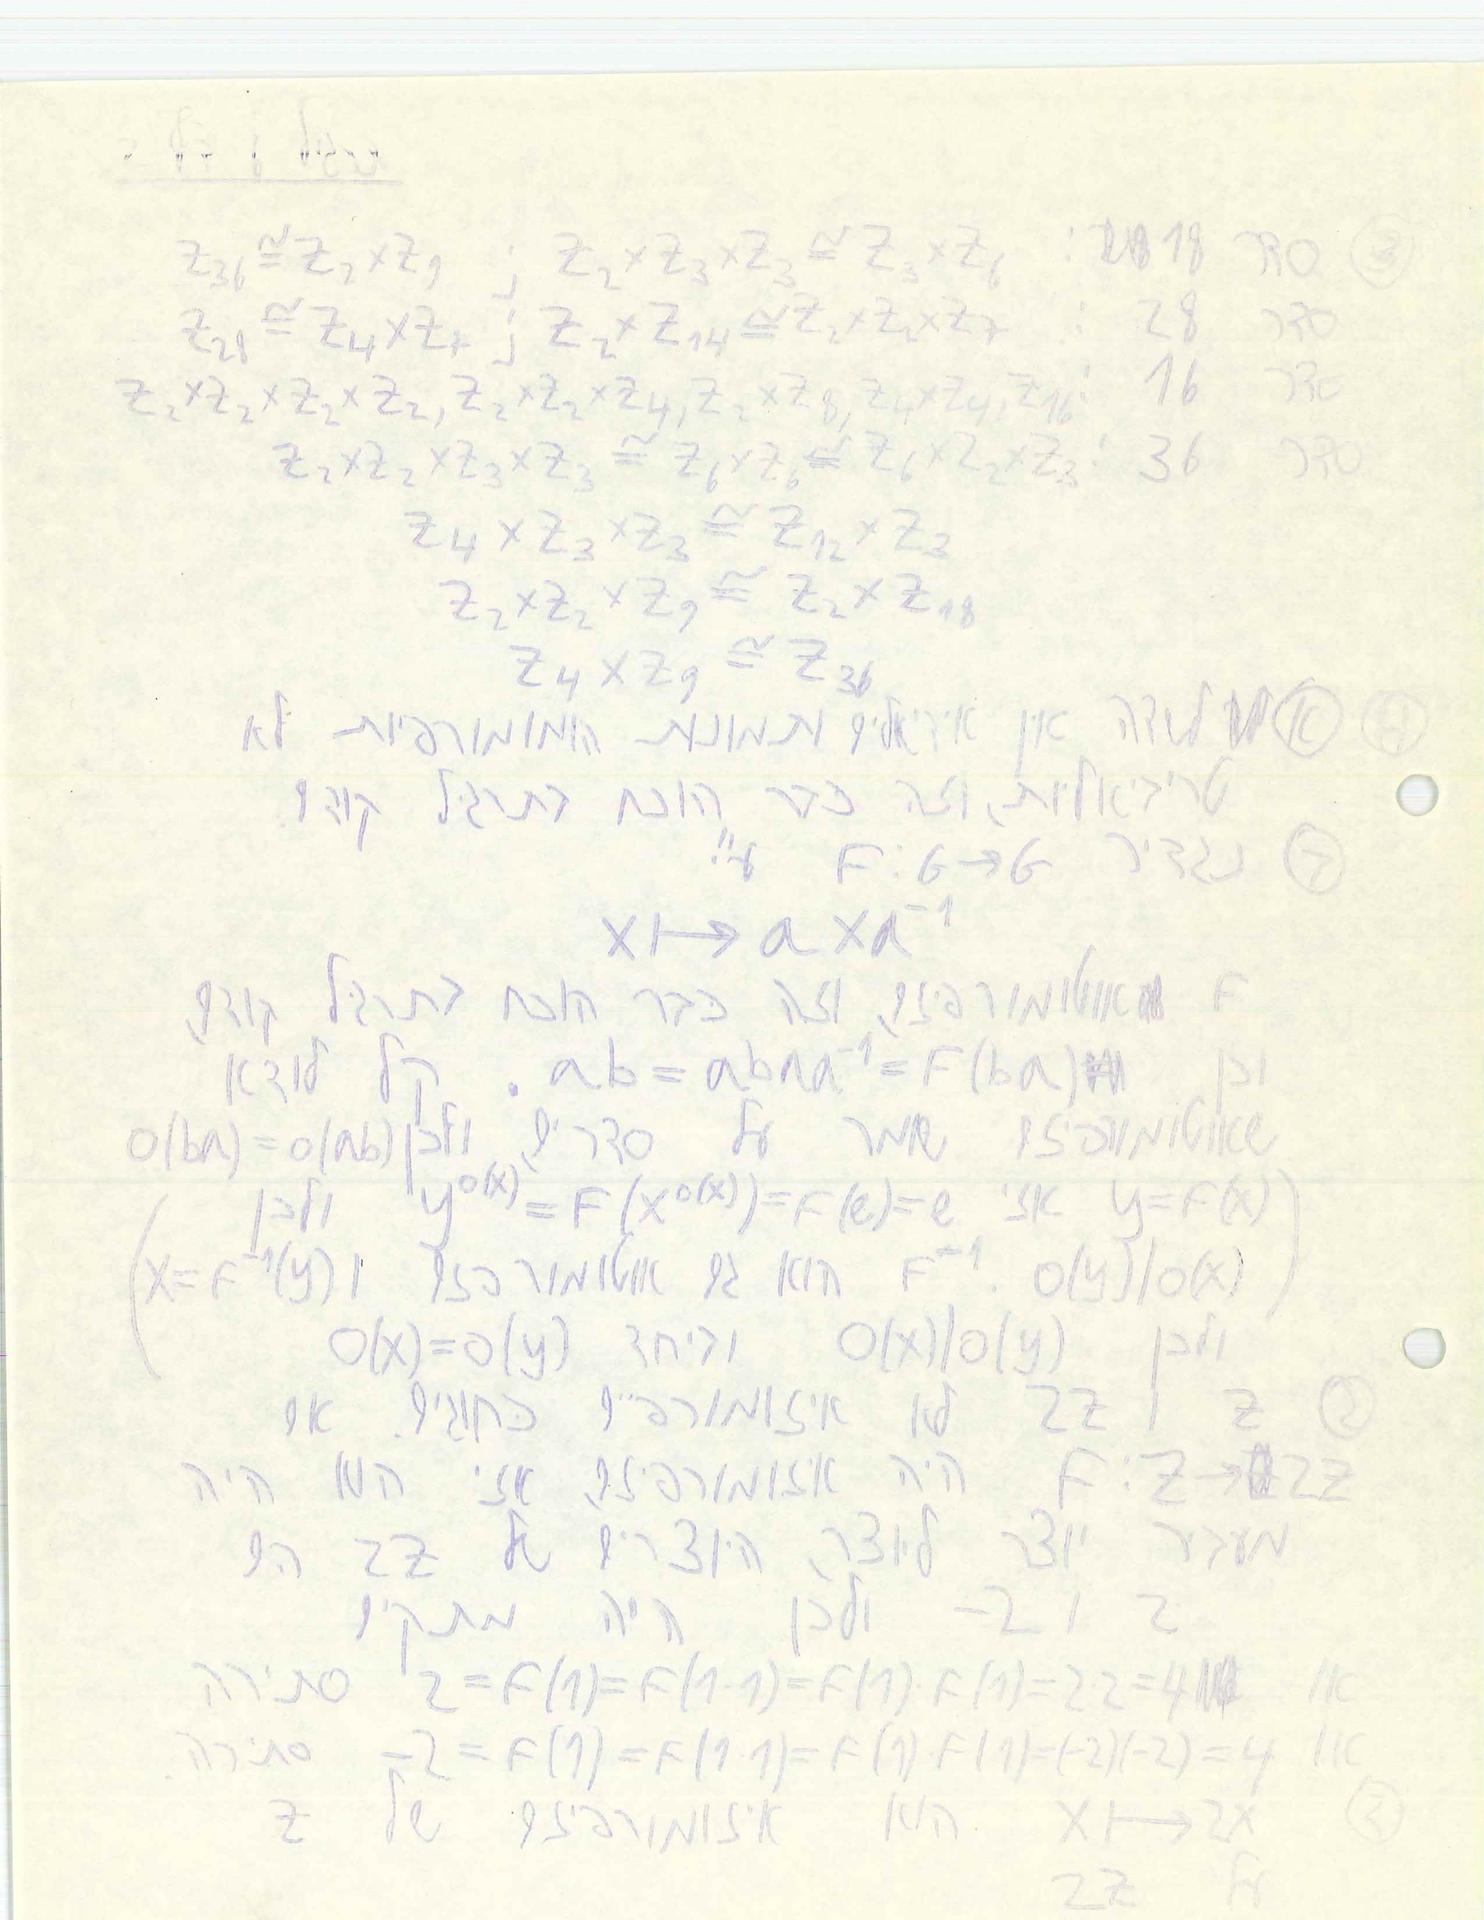 ③ סדר 18 : Z₃₆ ≅ Z₂×Z₉ ; Z₂×Z₃×Z₃ ≅ Z₃×Z₆
סדר 28 : Z₂₈ ≅ Z₄×Z₇ ; Z₂×Z₁₄ ≅ Z₂×Z₂×Z₇
סדר 16 : Z₂×Z₂×Z₂×Z₂, Z₂×Z₂×Z₄, Z₂×Z₈, Z₄×Z₄, Z₁₆
סדר 36 : Z₂×Z₂×Z₃×Z₃ ≅ Z₆×Z₆ ≅ Z₆×Z₂×Z₃
Z₄×Z₃×Z₃ ≅ Z₁₂×Z₃
Z₂×Z₂×Z₉ ≅ Z₂×Z₁₈
Z₄×Z₉ ≅ Z₃₆
א לשדה אין אידיאלים ותמונות הומומורפיות לא
טריביאליות, וזה כבר הוכח בתרגיל קודם.
נגדיר F:G→G ע"י:
x ↦ axa⁻¹
F אוטומורפיזם, וזה כבר הוכח בתרגיל קודם,
וכן ab = abaa⁻¹ = F(ba). קל לוודא
שאוטומורפיזם שומר על סדרים, ולכן o(ba)=o(ab)
(y=F(x) אזי y^o(x) = F(x^o(x)) = F(e) = e ולכן
o(y)|o(x). F⁻¹ הוא גם אוטומורפיזם ו x=F⁻¹(y)
ולכן o(x)|o(y) וביחד o(x)=o(y))
Z ו 2Z לא איזומורפיים כחוגים. אם
F:Z→2Z היה איזומורפיזם, אזי הוא היה
מעביר יוצר ליוצר, היוצרים של 2Z הם
2 ו -2 ולכן היה מתקיים
או 2=F(1)=F(1·1)=F(1)·F(1)=2·2=4 סתירה
או -2=F(1)=F(1·1)=F(1)·F(1)=(-2)(-2)=4 סתירה.
x ↦ 2x הוא איזומורפיזם של Z
על 2Z